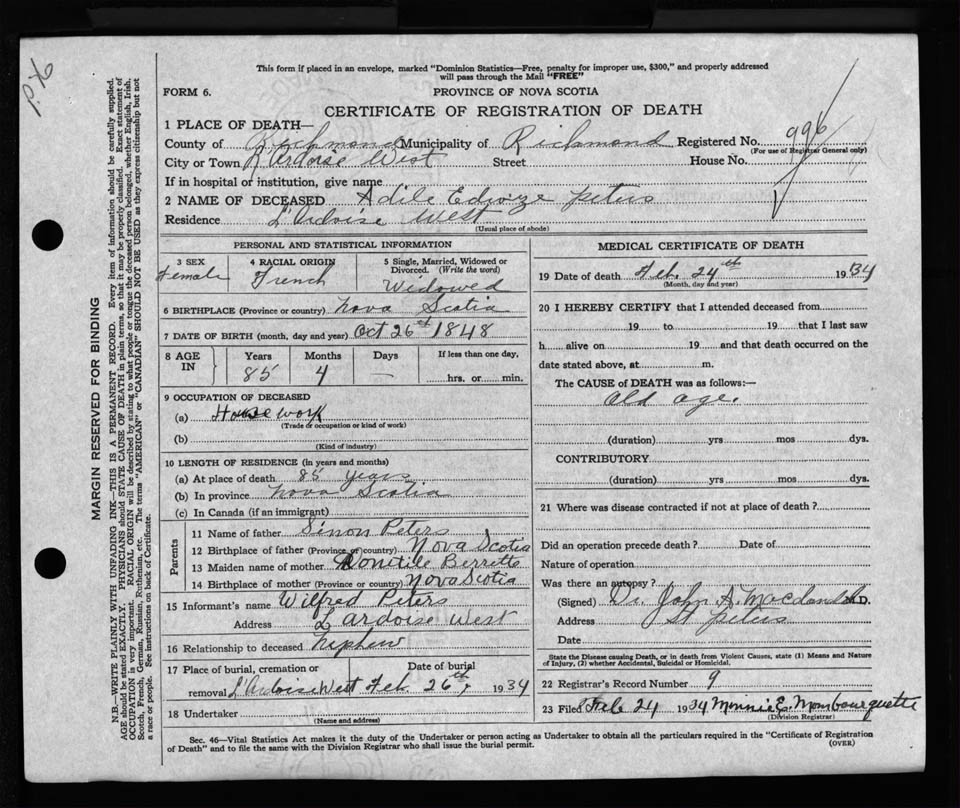 This form if placed in an envelope, marked "Dominion Statistics—Free, penalty for improper use, $300," and properly addressed
will pass through the Mail "FREE"
FORM 6.
PROVINCE OF NOVA SCOTIA
CERTIFICATE OF REGISTRATION OF DEATH
1 PLACE OF DEATH—
County of Richmond Municipality of Richmond Registered No. 996
(For use of Registrar General only)
City or Town L'Ardoise West Street House No.
If in hospital or institution, give name
2 NAME OF DECEASED Adile Edwize Peters
Residence L'Ardoise West
(Usual place of abode)
PERSONAL AND STATISTICAL INFORMATION
3 SEX Female
4 RACIAL ORIGIN French
5 Single, Married, Widowed or Divorced. (Write the word) Widowed
6 BIRTHPLACE (Province or country) Nova Scotia
7 DATE OF BIRTH (month, day and year) Oct 26 1848
8 AGE IN Years Months Days If less than one day,
85 4 — hrs. or min.
9 OCCUPATION OF DECEASED
(a) House work
(Trade or occupation or kind of work)
(b)
(Kind of industry)
10 LENGTH OF RESIDENCE (in years and months)
(a) At place of death 85 years
(b) In province Nova Scotia
(c) In Canada (if an immigrant)
Parents
11 Name of father Simon Peters
12 Birthplace of father (Province or country) Nova Scotia
13 Maiden name of mother Donitile Berrette
14 Birthplace of mother (Province or country) Nova Scotia
15 Informant's name Wilfred Peters
Address L'Ardoise West
16 Relationship to deceased Nephew
17 Place of burial, cremation or Date of burial
removal L'Ardoise West Feb. 26th, 1934
18 Undertaker
(Name and address)
MEDICAL CERTIFICATE OF DEATH
19 Date of death Feb. 24th 1934
(Month, day and year)
20 I HEREBY CERTIFY that I attended deceased from
19 to 19 that I last saw
h alive on 19 and that death occurred on the
date stated above, at m.
The CAUSE of DEATH was as follows:—
Old age.
(duration) yrs mos dys.
CONTRIBUTORY
(duration) yrs mos dys.
21 Where was disease contracted if not at place of death?
Did an operation precede death? Date of
Nature of operation
Was there an autopsy?
(Signed) Dr. John A. Macdonald M.D.
Address St Peters
Date
State the Disease causing Death, or in death from Violent Causes, state (1) Means and Nature
of Injury, (2) whether Accidental, Suicidal or Homicidal.
22 Registrar's Record Number 9
23 Filed Feb 24 1934 Minnie E. Mombourquette
(Division Registrar)
Sec. 46—Vital Statistics Act makes it the duty of the Undertaker or person acting as Undertaker to obtain all the particulars required in the "Certificate of Registration
of Death" and to file the same with the Division Registrar who shall issue the burial permit.
(OVER)
MARGIN RESERVED FOR BINDING
N.B.—WRITE PLAINLY WITH UNFADING INK—THIS IS A PERMANENT RECORD. Every item of information should be carefully supplied.
AGE should be stated EXACTLY. PHYSICIANS should STATE CAUSE OF DEATH in plain terms, so that it may be properly classified. Exact statement of
OCCUPATION is very important. RACIAL ORIGIN will be described by stating to what people or tongue the deceased person belonged, whether English, Irish,
Scotch, French, German, Russian, Ruthenian, etc. The terms "AMERICAN" or "CANADIAN" SHOULD NOT BE USED as they express citizenship but not
a race or people. See instructions on back of Certificate.